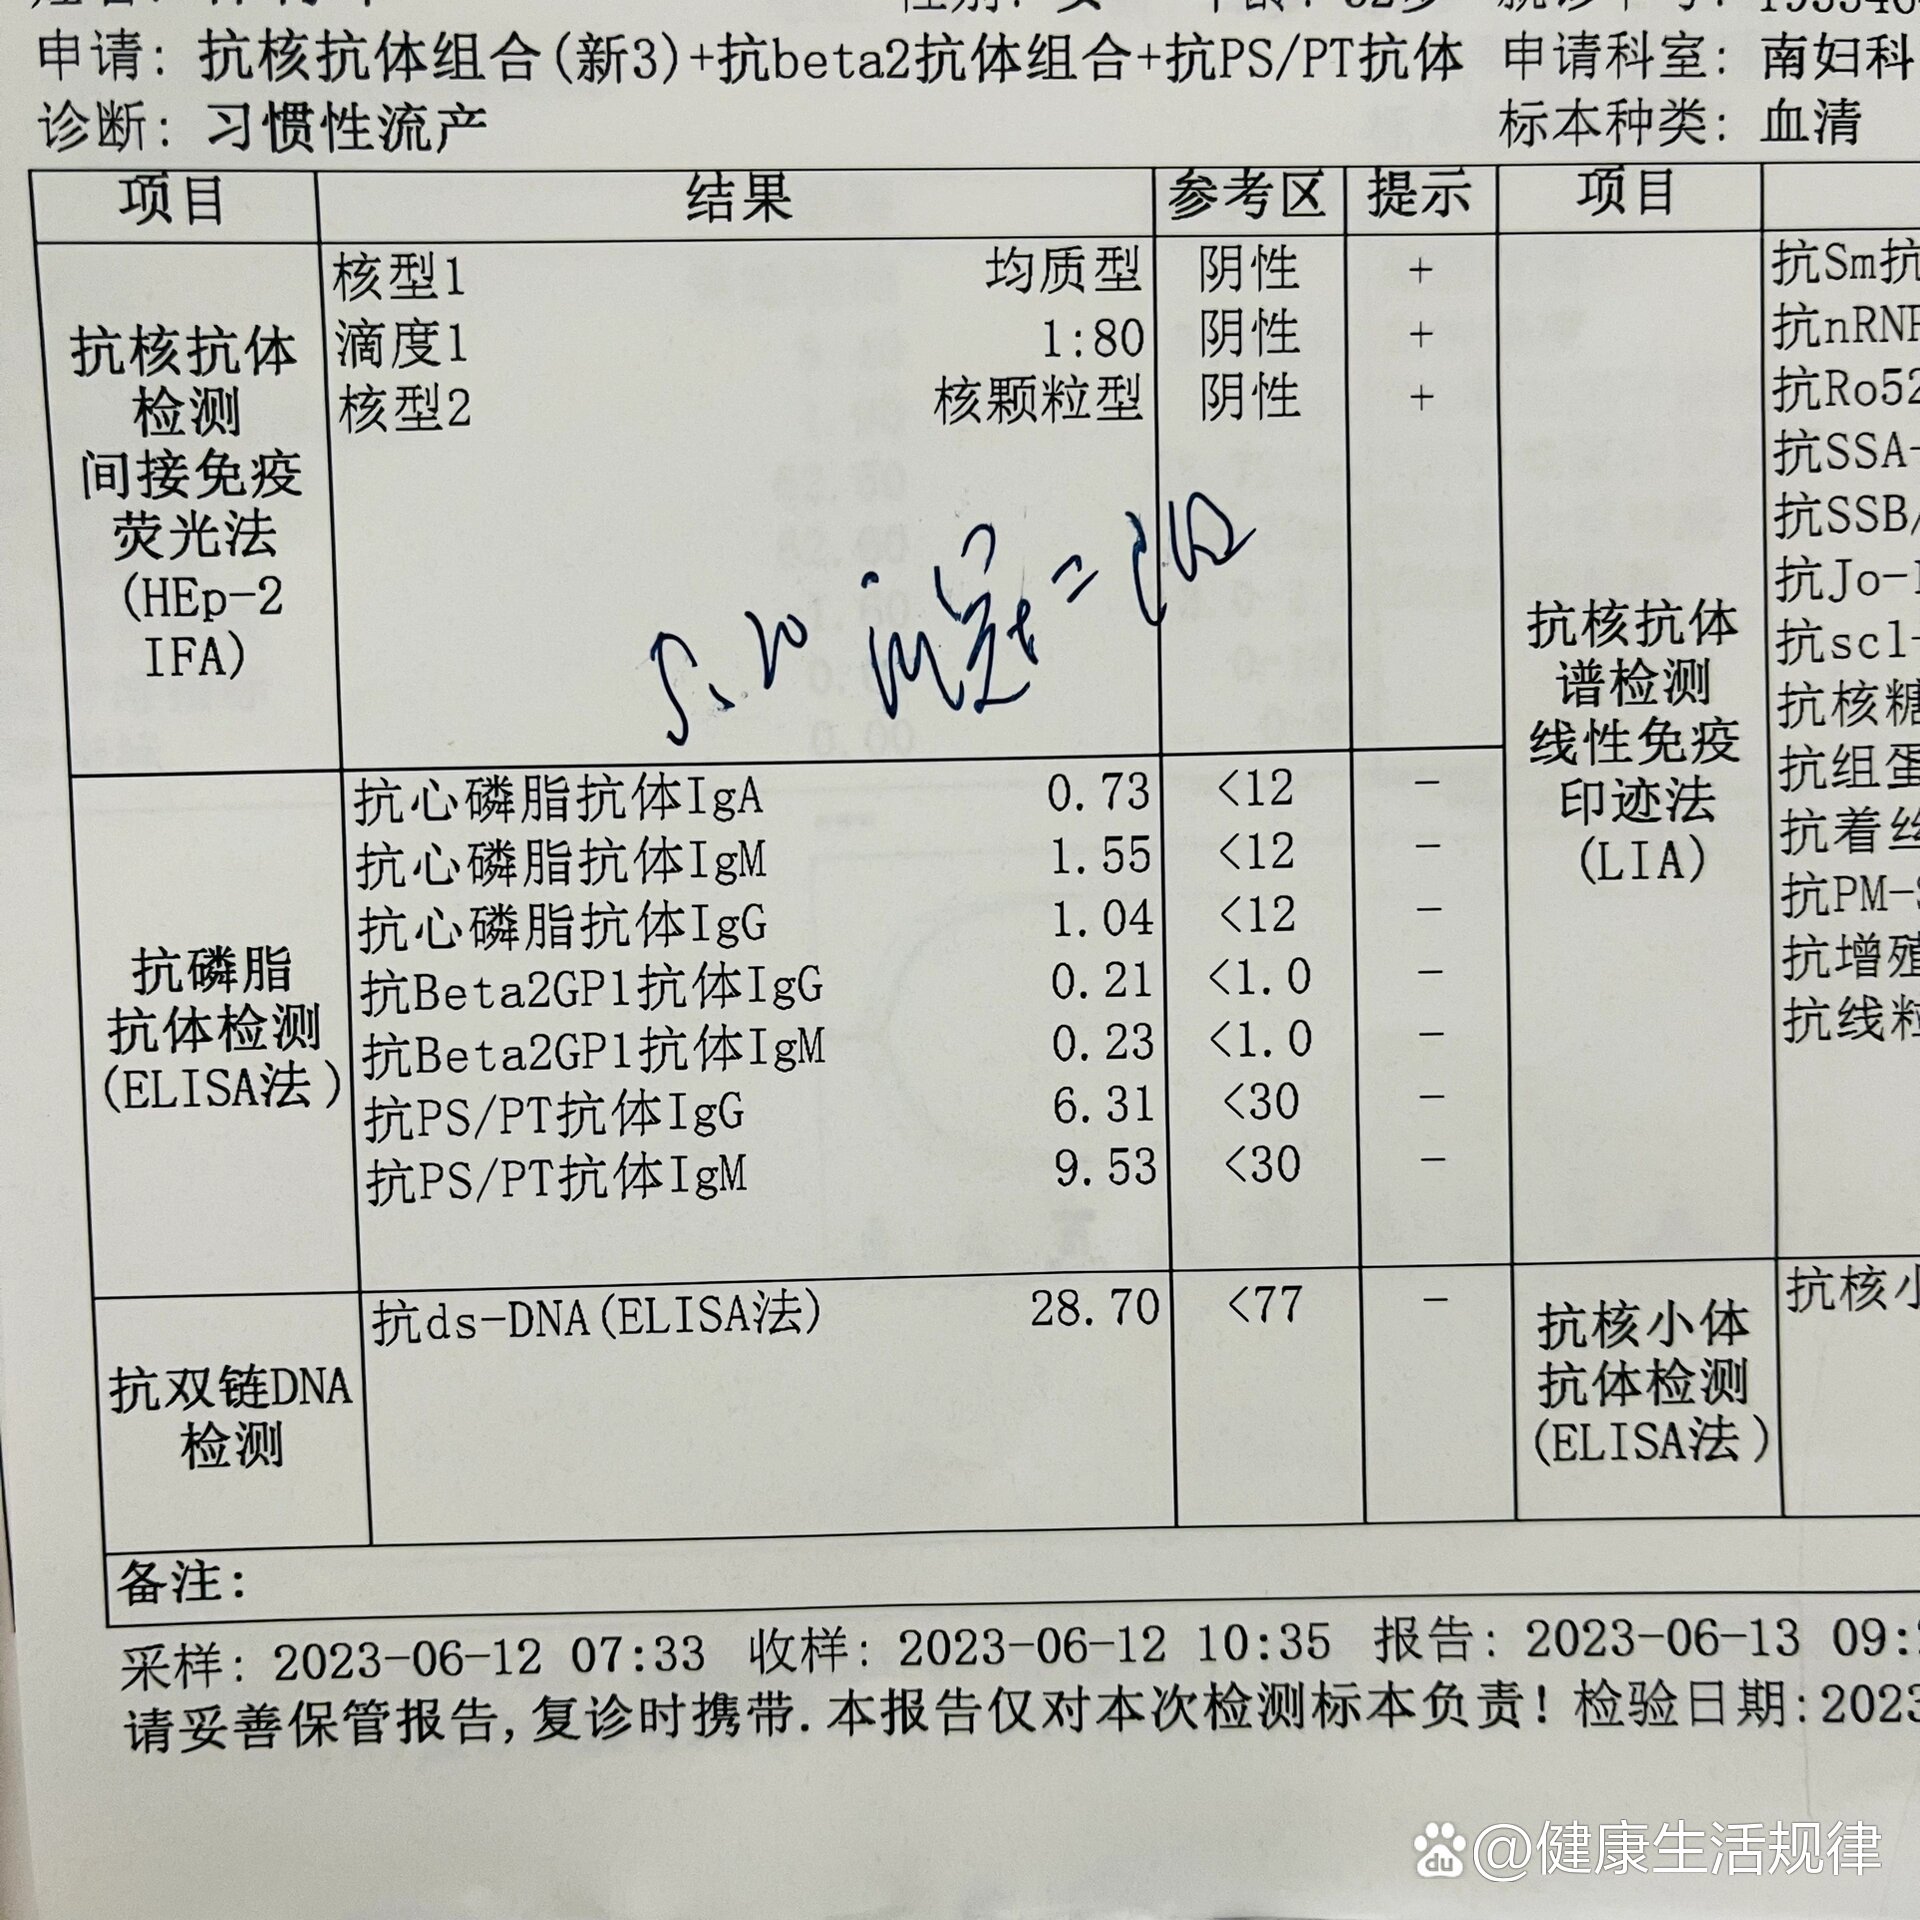 申请: 抗核抗体组合(新3)+抗beta2抗体组合+抗PS/PT抗体 申请科室: 南妇科
诊断: 习惯性流产 标本种类: 血清
项目 结果 参考区 提示 项目
抗核抗体
检测
间接免疫
荧光法
(HEp-2
IFA)
核型1 均质型 阴性 +
滴度1 1:80 阴性 +
核型2 核颗粒型 阴性 +
抗磷脂
抗体检测
(ELISA法)
抗心磷脂抗体IgA 0.73 <12 -
抗心磷脂抗体IgM 1.55 <12 -
抗心磷脂抗体IgG 1.04 <12 -
抗Beta2GP1抗体IgG 0.21 <1.0 -
抗Beta2GP1抗体IgM 0.23 <1.0 -
抗PS/PT抗体IgG 6.31 <30 -
抗PS/PT抗体IgM 9.53 <30 -
抗双链DNA
检测
抗ds-DNA(ELISA法) 28.70 <77 -
抗核抗体
谱检测
线性免疫
印迹法
(LIA)
抗Sm抗
抗nRNP
抗Ro52
抗SSA-
抗SSB/
抗Jo-1
抗scl-
抗核糖
抗组蛋
抗着丝
抗PM-S
抗增殖
抗线粒
抗核小体
抗体检测
(ELISA法)
抗核小
备注:
采样: 2023-06-12 07:33 收样: 2023-06-12 10:35 报告: 2023-06-13 09:
请妥善保管报告,复诊时携带.本报告仅对本次检测标本负责! 检验日期:2023
du @健康生活规律